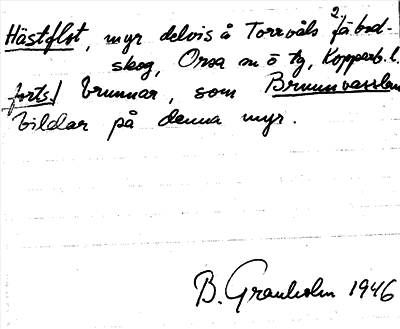 Hästflot, myr delvis å Torrvåls 2 fäbod-
skog, Orsa sn ö tg, Kopparb. l.
forts./ brunnar, som Brunnvasslan
bildar på denna myr.
B. Granholm 1946